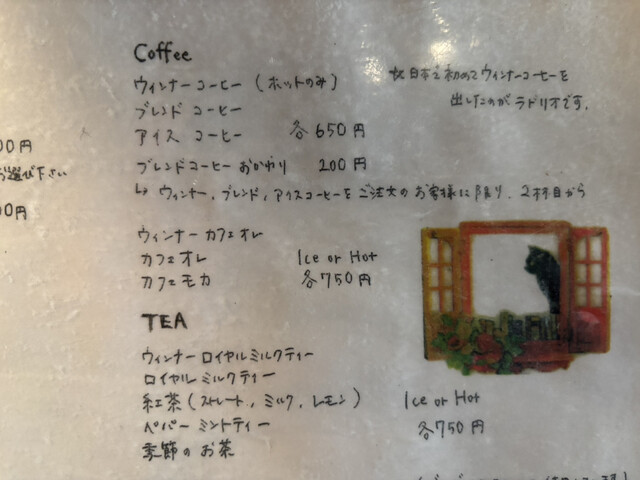 Coffee
ウィンナーコーヒー (ホットのみ)
☆日本で初めてウィンナーコーヒーを
出したのがラドリオです。
ブレンド コーヒー
アイス コーヒー 各650円
ブレンドコーヒー おかわり 200円
↳ ウィンナー, ブレンド, アイスコーヒーをご注文のお客様に限り、2杯目から
ウィンナー カフェ オレ
カフェ オレ Ice or Hot
カフェ モカ 各750円
TEA
ウィンナー ロイヤル ミルクティー
ロイヤル ミルクティー
紅茶 (ストレート, ミルク, レモン) Ice or Hot
ペパーミントティー 各750円
季節の お茶
00円
お選び下さい
00円